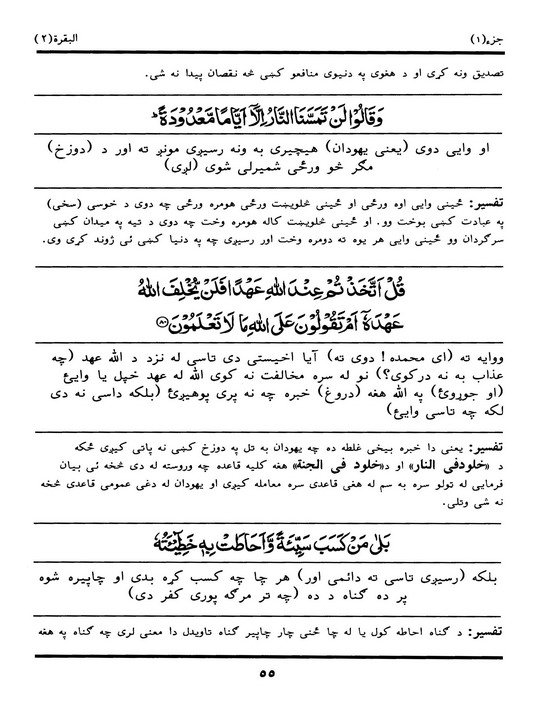 جزء (۱) البقرة (۲)
تصدیق ونه کړی او د هغوی په دنیوی منافعو کښی څه نقصان پیدا نه شی.
وَقَالُوْا لَنْ تَمَسَّنَا النَّارُ اِلَّآ اَیَّامًا مَّعْدُوْدَةً ؕ
او وایی دوی (یعنی یهودان) هیڅیری به ونه رسیږی مونږ ته اور د (دوزخ)
مګر څو ورځی شمیرلی شوی (لږی)
تفسیر: ځینی وایی اوه ورځی او ځینی څلویښت ورځی هومره ورځی چه دوی د خوسی (سخی)
په عبادت کښی بوخت وو. او ځینی څلویښت کاله هومره وخت چه دوی د تیه په میدان کښی
سرګردان وو ځینی وایی هر یوه ته دومره وخت اور رسیږی چه په دنیا کښی ئی ژوند کړی وی.
قُلْ اَتَّخَذْتُمْ عِنْدَ اللّٰهِ عَهْدًا فَلَنْ یُّخْلِفَ اللّٰهُ
عَهْدَهٗٓ اَمْ تَقُوْلُوْنَ عَلَی اللّٰهِ مَا لَا تَعْلَمُوْنَ ﴿۸۰﴾
ووایه ته (ای محمده! دوی ته) آیا اخیستی دی تاسی له نزد د الله عهد (چه
عذاب به نه درکوی؟) نو له سره مخالفت نه کوی الله له عهد خپل یا وایئ
(او جوړوئ) په الله هغه (دروغ) خبره چه نه پری پوهیږئ (بلکه داسی نه دی
لکه چه تاسی وایئ)
تفسیر: یعنی دا خبره بیخی غلطه ده چه یهودان به تل په دوزخ کښی نه پاتی کیږی ځکه
د «خلود فی النار» او د «خلود فی الجنة» هغه کلیه قاعده چه وروسته له دی څخه ئی بیان
فرمایی له ټولو سره به سم له هغی قاعدی سره معامله کیږی او یهودان له دغی عمومی قاعدی څخه
نه شی وتلی.
بَلٰی مَنْ کَسَبَ سَیِّئَةً وَّاَحَاطَتْ بِهٖ خَطِیْٓئَتُهٗ
بلکه (رسیږی تاسی ته دائمی اور) هر چا چه کسب کړه بدی او چاپیره شوه
پر ده ګناه د ده (چه تر مرګه پوری کفر دی)
تفسیر: د ګناه احاطه کول یا له چا ځنی چار چاپیر ګناه تاویدل دا معنی لری چه ګناه په هغه
۵۵